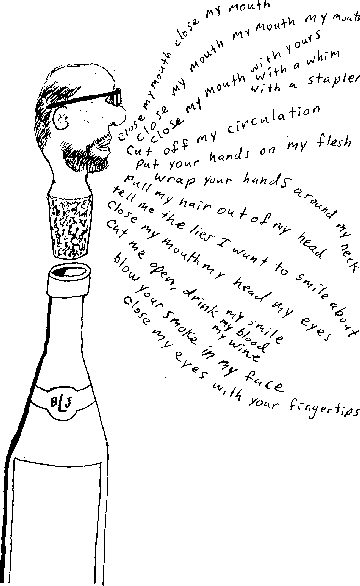 close my mouth close my mouth
close my mouth my mouth my mouth
close my mouth with yours
with a whim
with a stapler
cut off my circulation
put your hands on my flesh
wrap your hands around my neck
pull my hair out of my head
tell me the lies I want to smile about
close my mouth my head my eyes
cut me open, drink my smile
my blood
my wine
blow your smoke in my face
close my eyes with your fingertips
BLS